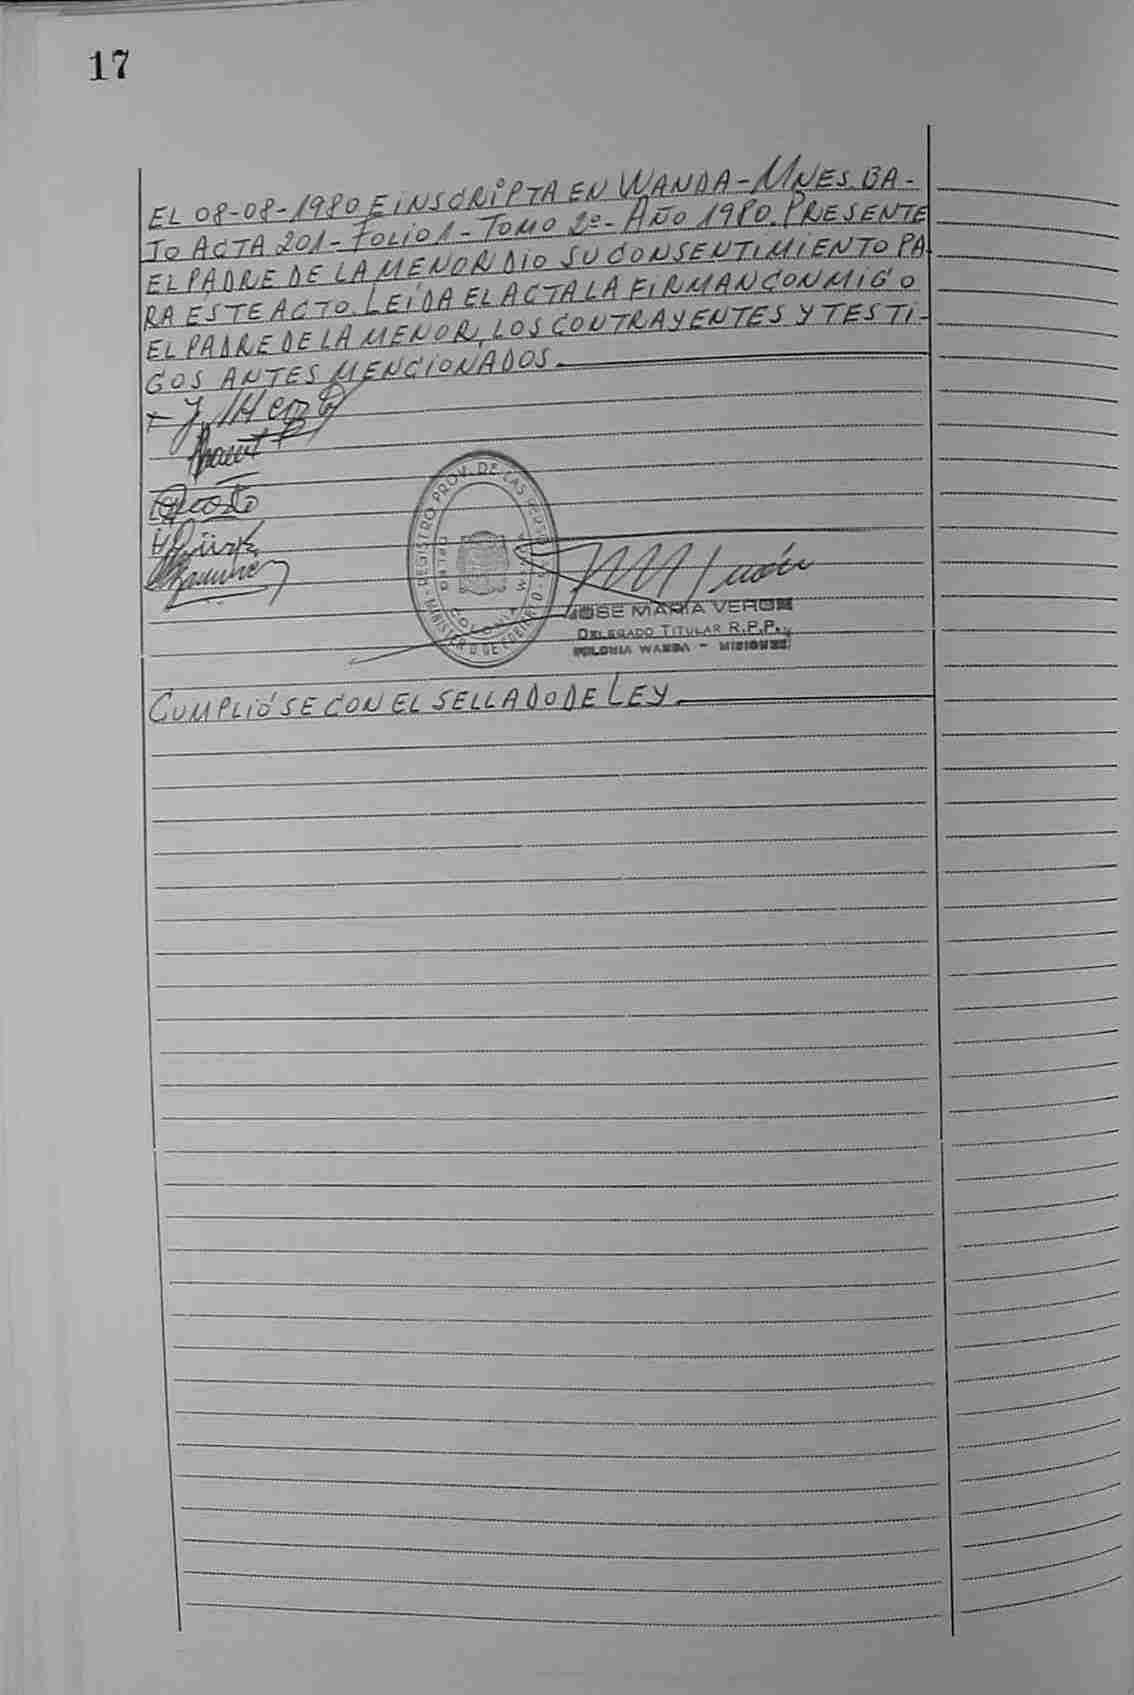 17
EL 08-08-1980 E iNSCRiPTA EN WANDA-MNES. BA-
JO ACTA 201- FOLIO 1- TOMO 2º- AÑO 1980. PRESENTE
EL PADRE DE LA MENOR DIO SU CONSENTIMIENTO PA-
RA ESTE ACTO. LEÍDA EL ACTA LA FIRMAN CONMIGO
EL PADRE DE LA MENOR, LOS CONTRAYENTES Y TESTI-
GOS ANTES MENCIONADOS.
REGISTRO PROV. DE LAS
MINISTERIO DE GOBIERNO
COLONIA WANDA
JOSE MARIA VERON
DELEGADO TITULAR R.P.P.
COLONIA WANDA - MISIONES
CUMPLIÓSE CON EL SELLADO DE LEY.